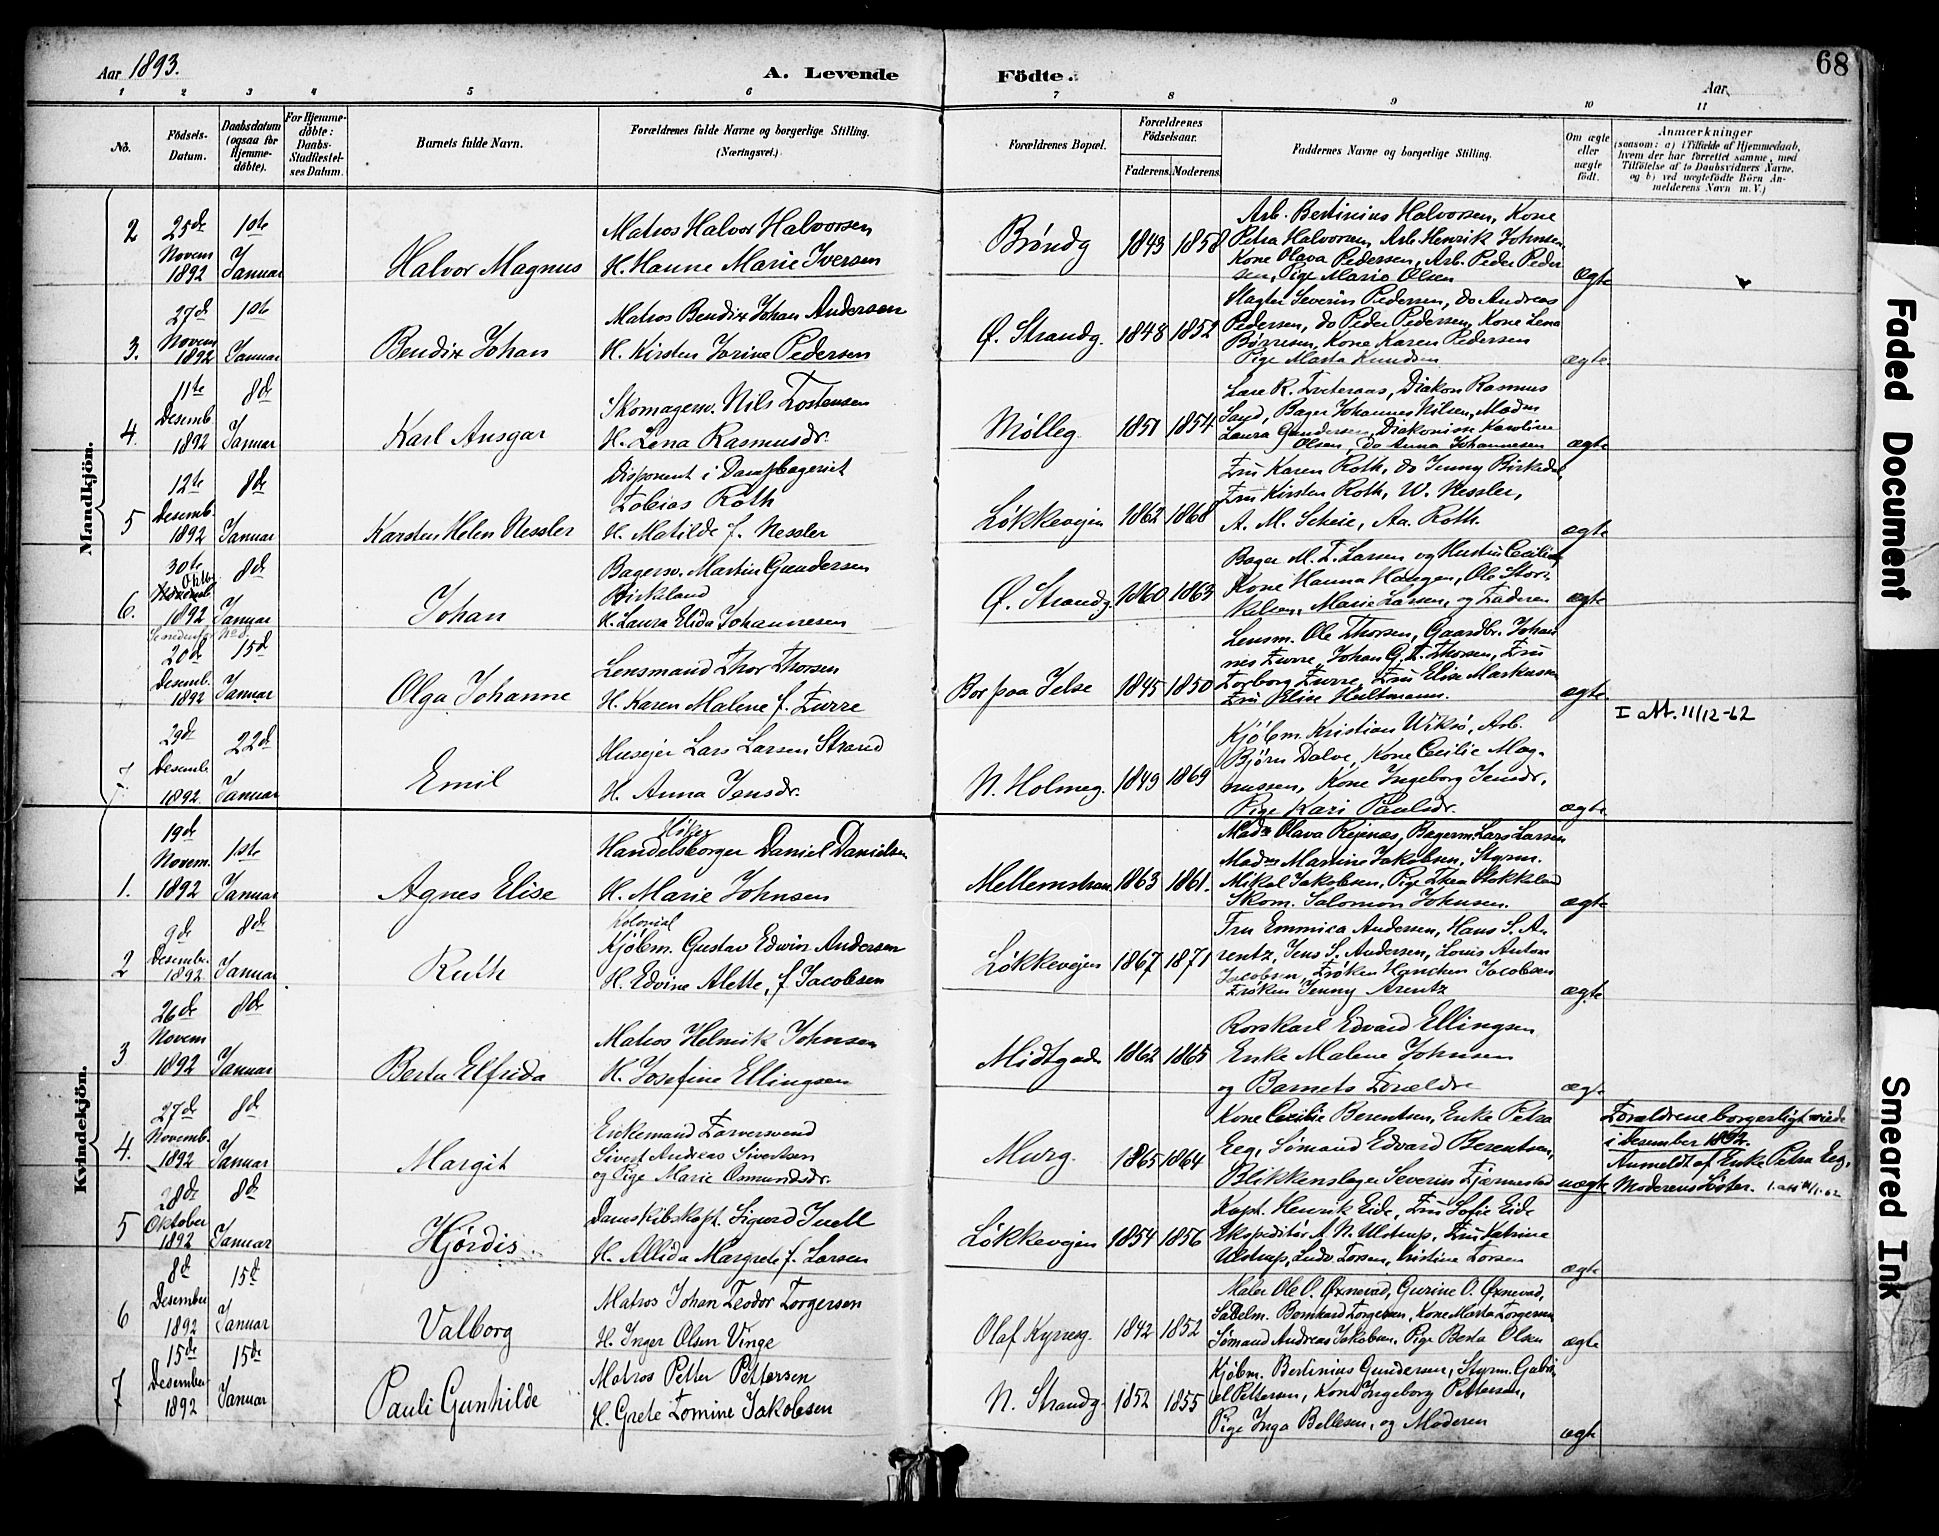 Aar 1893.
A. Levende Födte.
68
Aar
1 2 3 4 5 6 7 8 9 10 11
No.
Födsels-
Datum.
Daabsdatum
(ogsaa for
Hjemme-
døbte).
For Hjemme-
døbte:
Daabs-
Stadfæstel-
ses Datum.
Barnets fulde Navn.
Forældrenes fulde Navne og borgerlige Stilling.
(Næringsvei.)
Forældrenes Bopæl.
Forældrenes
Födselsaar.
Faderens. Moderens.
Faddernes Navne og borgerlige Stilling.
Om ægte
eller
uægte
født.
Anmærkninger
(saasom: a) i Tilfælde af Hjemmedaab,
hvem der har forrettet samme, med
Tilföielse af to Daabsvidners Navne,
og b) ved uægtefödte Börn An-
melderens Navn m. V.)
Mandkjön.
2
25de
Novem
1892
1ste
Januar
Halvor Magnus
Matros Halvor Halvorsen
H. Hanne Marie Iversen
Brøndg
1843 1858
Arb. Bertinius Halvorsen, Kone
Petra Halvorsen, Arb. Henrik Johnsen
Kone Olava Pedersen, Arb. Peder Peder
sen, Pige Marie Olsen
ægte
3.
27de
Novem
1892
1ste
Januar
Bendix Johan
Matros Bendix Johan Andersen
H. Kirsten Jorine Pedersen
Ø. Strandg.
1848 1852
Slagter Severin Pedersen, do Andreas
Pedersen, do Peder Pedersen, Kone Lena
Børresen, Kone Karen Pedersen
Pige Marta Knudsen
ægte
4.
11te
Desemb.
1892
8de
Januar
Karl Ansgar
Skomagersv. Nils Tostensen
H. Lena Rasmusdr.
Mølleg.
1851 1854
Lære K. Tveteraas, Diakon Rasmus
Sand, Bager Johannes Nilsen, Madm
Laura Gundersen, Diakonisse Karoline
Olsen, do Anna Johannesen
ægte
5
12te
Desemb.
1892
8de
Januar
Karsten Helen Nessler
Disponent i Dampbageriet
Tobias Roth
H. Matilde f. Nessler
Løkkevejen
1862 1868
Fru Karen Roth, do Jenny Birkedal
Fru Kirsten Roth, W. Nessler,
A. M. Scheie, Aa. Roth.
ægte
6.
30te
Oktbr
1892
8de
Januar
Johan
Bagersv. Martin Gundersen
Birkland
H. Laura Elida Johannesen
Ø. Strandg.
1860 1863
Bager M. T. Larsen og Hustru Cecilie
Kone Hanna Haugen, Ole Stor-
kelsen, Marie Larsen, og Faderen
ægte
Se nedenfor No 8.
20de
Desemb.
1892
15de
Januar
Olga Johanne
Lensmand Thor Thorsen
H. Karen Malene f. Furre
Bor paa Jelse
1845 1850
Lensm. Ole Thorsen, Gaardbr. Johan
nes Furre, Johan G. T. Thorsen, Fru
Torborg Furre, Fru Elise Markussen
Fru Elise Heltmann.
ægte
I att. 11/12-62
7.
29de
Desemb.
1892.
22de
Januar
Emil
Husejer Lars Larsen Strand
H. Anna Jensdr.
N. Holmeg.
1849 1869
Kjøbm. Kristian Wiksø, Arb.
Bjørn Dalve, Kone Cecilie Mag-
nussen, Kone Ingeborg Jensdr,
Pige Kari Paulsdr.
ægte
Kvindekjön.
1.
19de
Novem.
1892
1ste
Januar
Agnes Elise
Høker
Handelsborger Daniel Danielsen
H. Marie Johnsen
Mellemstræ
1863 1861.
Madm Olava Rejenæs, Bagerm. Lars Larsen
Madm Martine Jakobsen, Styrm.
Mikal Jakobsen, Pige Thea Stokkeland
Skom. Salomon Johnsen.
ægte
2
9de
Desembr.
1892
8de
Januar
Ruth
Kolonial
Kjøbm. Gustav Edwin Andersen
H. Edvine Alette, f. Jacobsen
Løkkevejen
1867 1871
Fru Emmica Andersen, Hans S. A-
rentz, Jens S. Andersen, Louis Anton
Jacobsen, Frøken Hanchen Jacobsen
Frøken Jenny Arentz
ægte
3
26de
Novem
1892
8de
Januar
Berta Elfrida
Matros Helmik Johnsen
H. Josefine Ellingsen
Midtgade
1862 1865
Rorskarl Edvard Ellingsen
Enke Malene Johnsen
og Barnets Forældre
ægte
4.
27de
Novemb.
1892
8de
Januar
Margit
Enkemand Farversvend
Sivert Andreas Sivertsen
og Pige Marie Osmundsdr.
Murg.
1865 1864
Kone Cecilie Berentsen, Enke Petra
Eeg, Sømand Edvard Berentsen,
Blikkenslager Severin Fjærmestad
uægte
Forældrene borgerligt viede
i Desember 1892.
Anmeldt af Enke Petra Eeg,
Moderens Søster.
5
28de
Oktober
1892
8de
Januar
Hjørdis
Damskibskapt. Sigurd Juell
H. Allida Margrete f. Larsen
Løkkevejen
1854 1856
Kapt. Henrik Eide, Fru Sofie Eide
Ekspeditør A. N. Ulstrup, Fru Katrine
Ulstrup, Ludv. Torsen, Kristine Torsen
ægte
6
8de
Desember
1892
15de
Januar
Valborg
Matros Johan Teodor Torgersen
H. Inger Olsen Vinge
Olaf Kyrresg.
1842 1852
Maler Ole O. Øxnevad, Gurine O. Øxnevad,
Sadelm. Bernhard Torgersen, Kone Marta Torgersen
Sømand Andreas Jakobsen, Pige Berta Olsen
ægte
7
15de
Desember
1892
15de
Januar
Pauli Gunhilde
Matros Petter Pettersen
H. Grete Tomine Jakobsen
N. Strandg.
1852 1855
Kjøbm. Bertinius Gundersen, Styrm. Gabri
el Pettersen, Kone Ingeborg Pettersen,
Pige Inga Bellesen, og Moderen
ægte
Faded Document
Smeared Ink